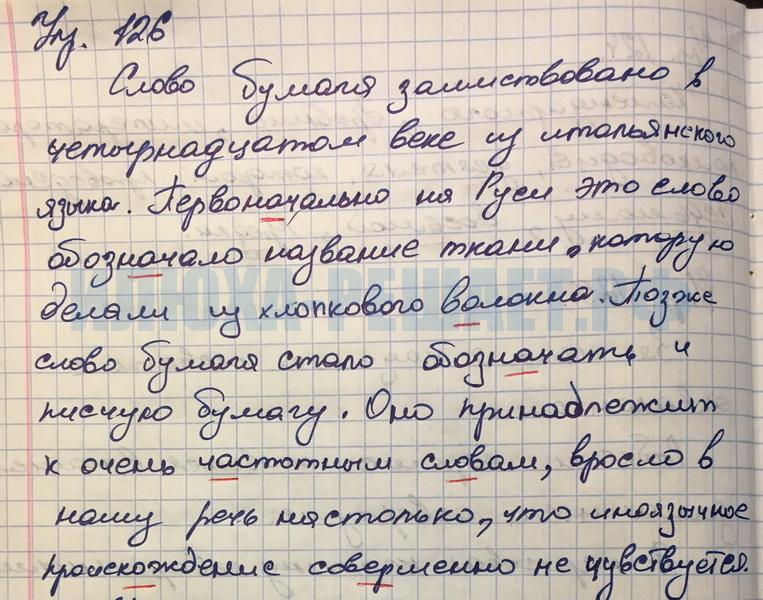 Упр. 126
Слово бумага заимствовано в
четырнадцатом веке из итальянского
языка. Первоначально на Руси это слово
обозначало название ткани, которую
делали из хлопкового волокна. Позже
слово бумага стало обозначать и
писчую бумагу. Оно принадлежит
к очень частотным словам, вросло в
нашу речь настолько, что иноязычное
происхождение соверменно не чувствуется.